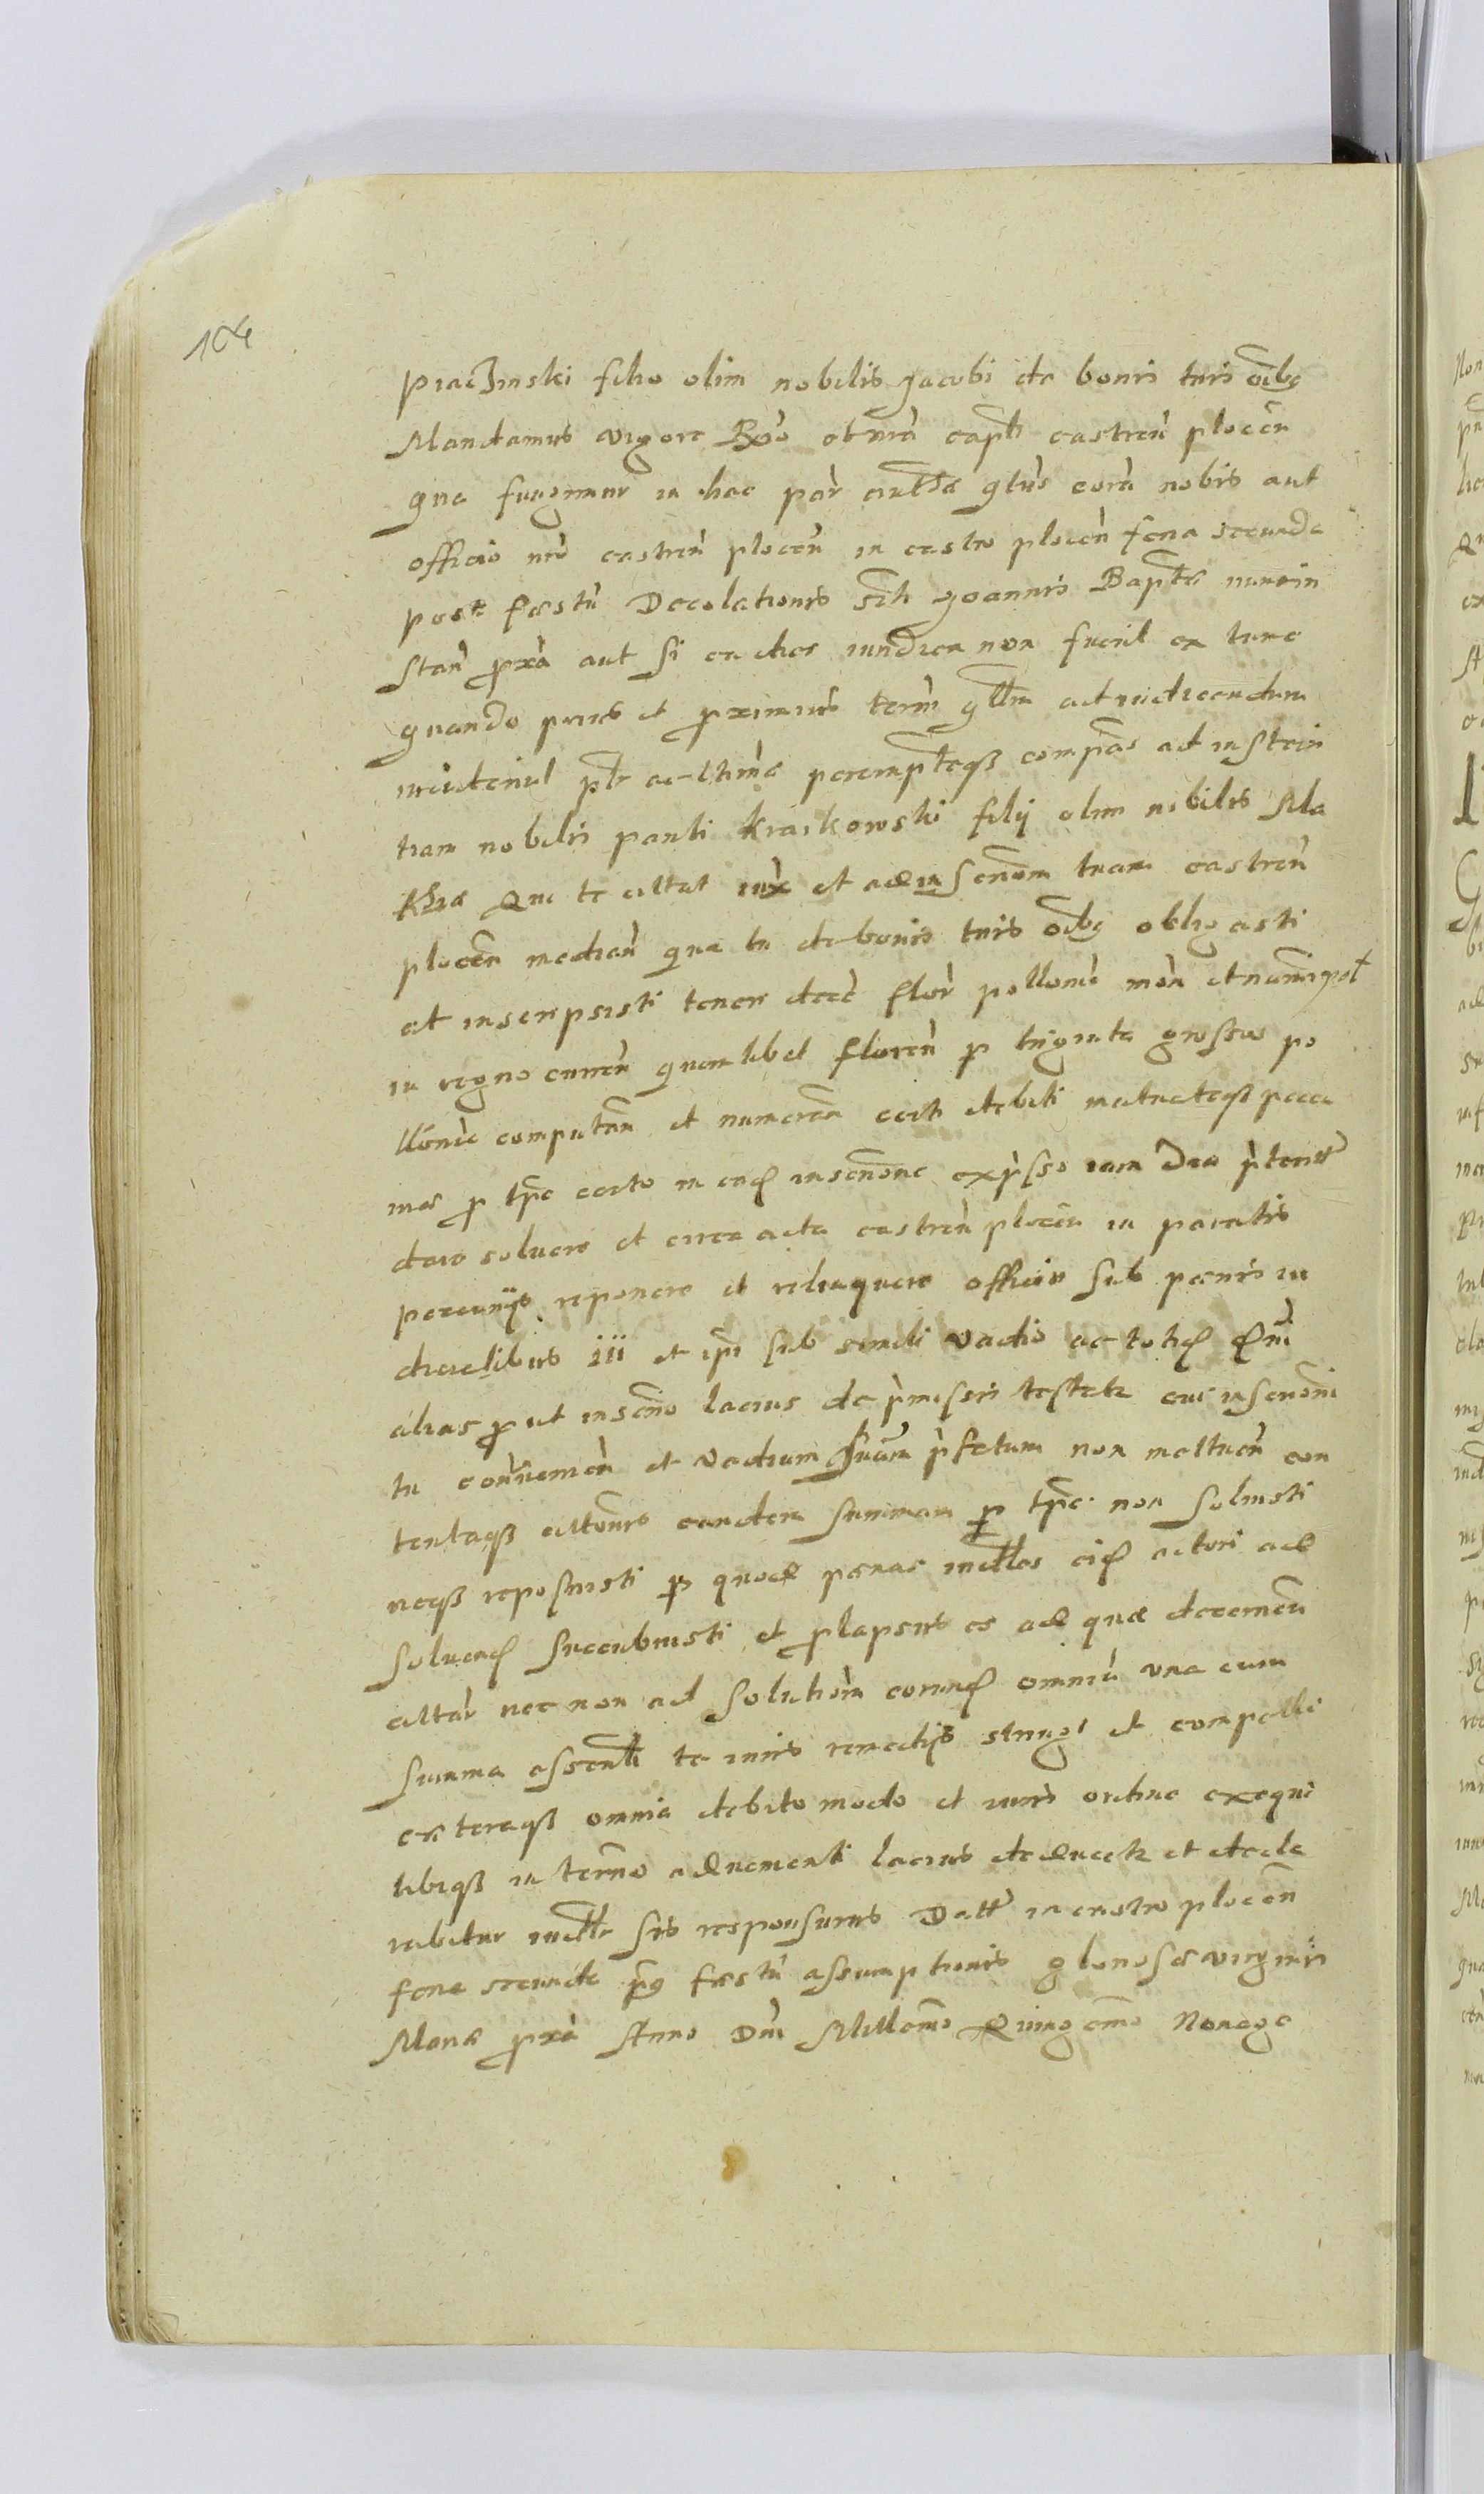 104
Piaczinski filio olim nobilis Jacobi de bonis tuis oibg
Mandamus vigore Regio obtnta capli castren plocen
qua fungimur in hac par autte qtus cora nobis aut
officio nro castren plocen in castro plocen feria secunda
post festu Decolationis Scti Joannis Baptae nunc in
stan prxa aut si ea dies iuridica non fuerit ex tunc
quando prius et proximius termi qllm ad iudicandum
inciderint plr ac ltime peremptieqz compas ad instan
tiam nobilis pauli Kraikowski filij olim nobilis Ma
thiae Qui te citat iux et ad inscriom tuam castren
plocen median qua tu de bonis tuis oibg obligasti
et inscripsisti tener dece flor pollonic mon et numi pol
in regno curren quemlibet floren p triginta grossos po
llonic computan et numeran certi debiti mutuateqz pecu
niae p tpe certo in eadem inscrione expsso iam diu pterito
dare solvere et circa acta castren plocen in paratis
pecunijs reponere et relinquere officio sub penis iu
dicialibus iii et ipi sub simili vadio ac totiq qni
alias prout inscrio lacius de pmissis testatr cui inscrioni
tu contravenien et vadium suum pfatum non metuen con
tentaqz actoris eandem summam p tpe non solvisti
neqz reposuisti p quod penas invllas eidem actori ad
solvend succubuisti et plapsus es ad quae decernen
citar nec non ad solutiom eorund omniu una cum
summa essentli te iuris remedijs stringi et compelli
ceteraqz omnia debito modo et iuris ordine exequi
tibiqz in termo advenienti lacius deducetr et decla
rabitur indllr sis responsurus Datt in castro plocen
feria secunda pq festu assumptionis gloriosae virginis
Mariae prxa Anno Dni Millemo Quingemo Nonage